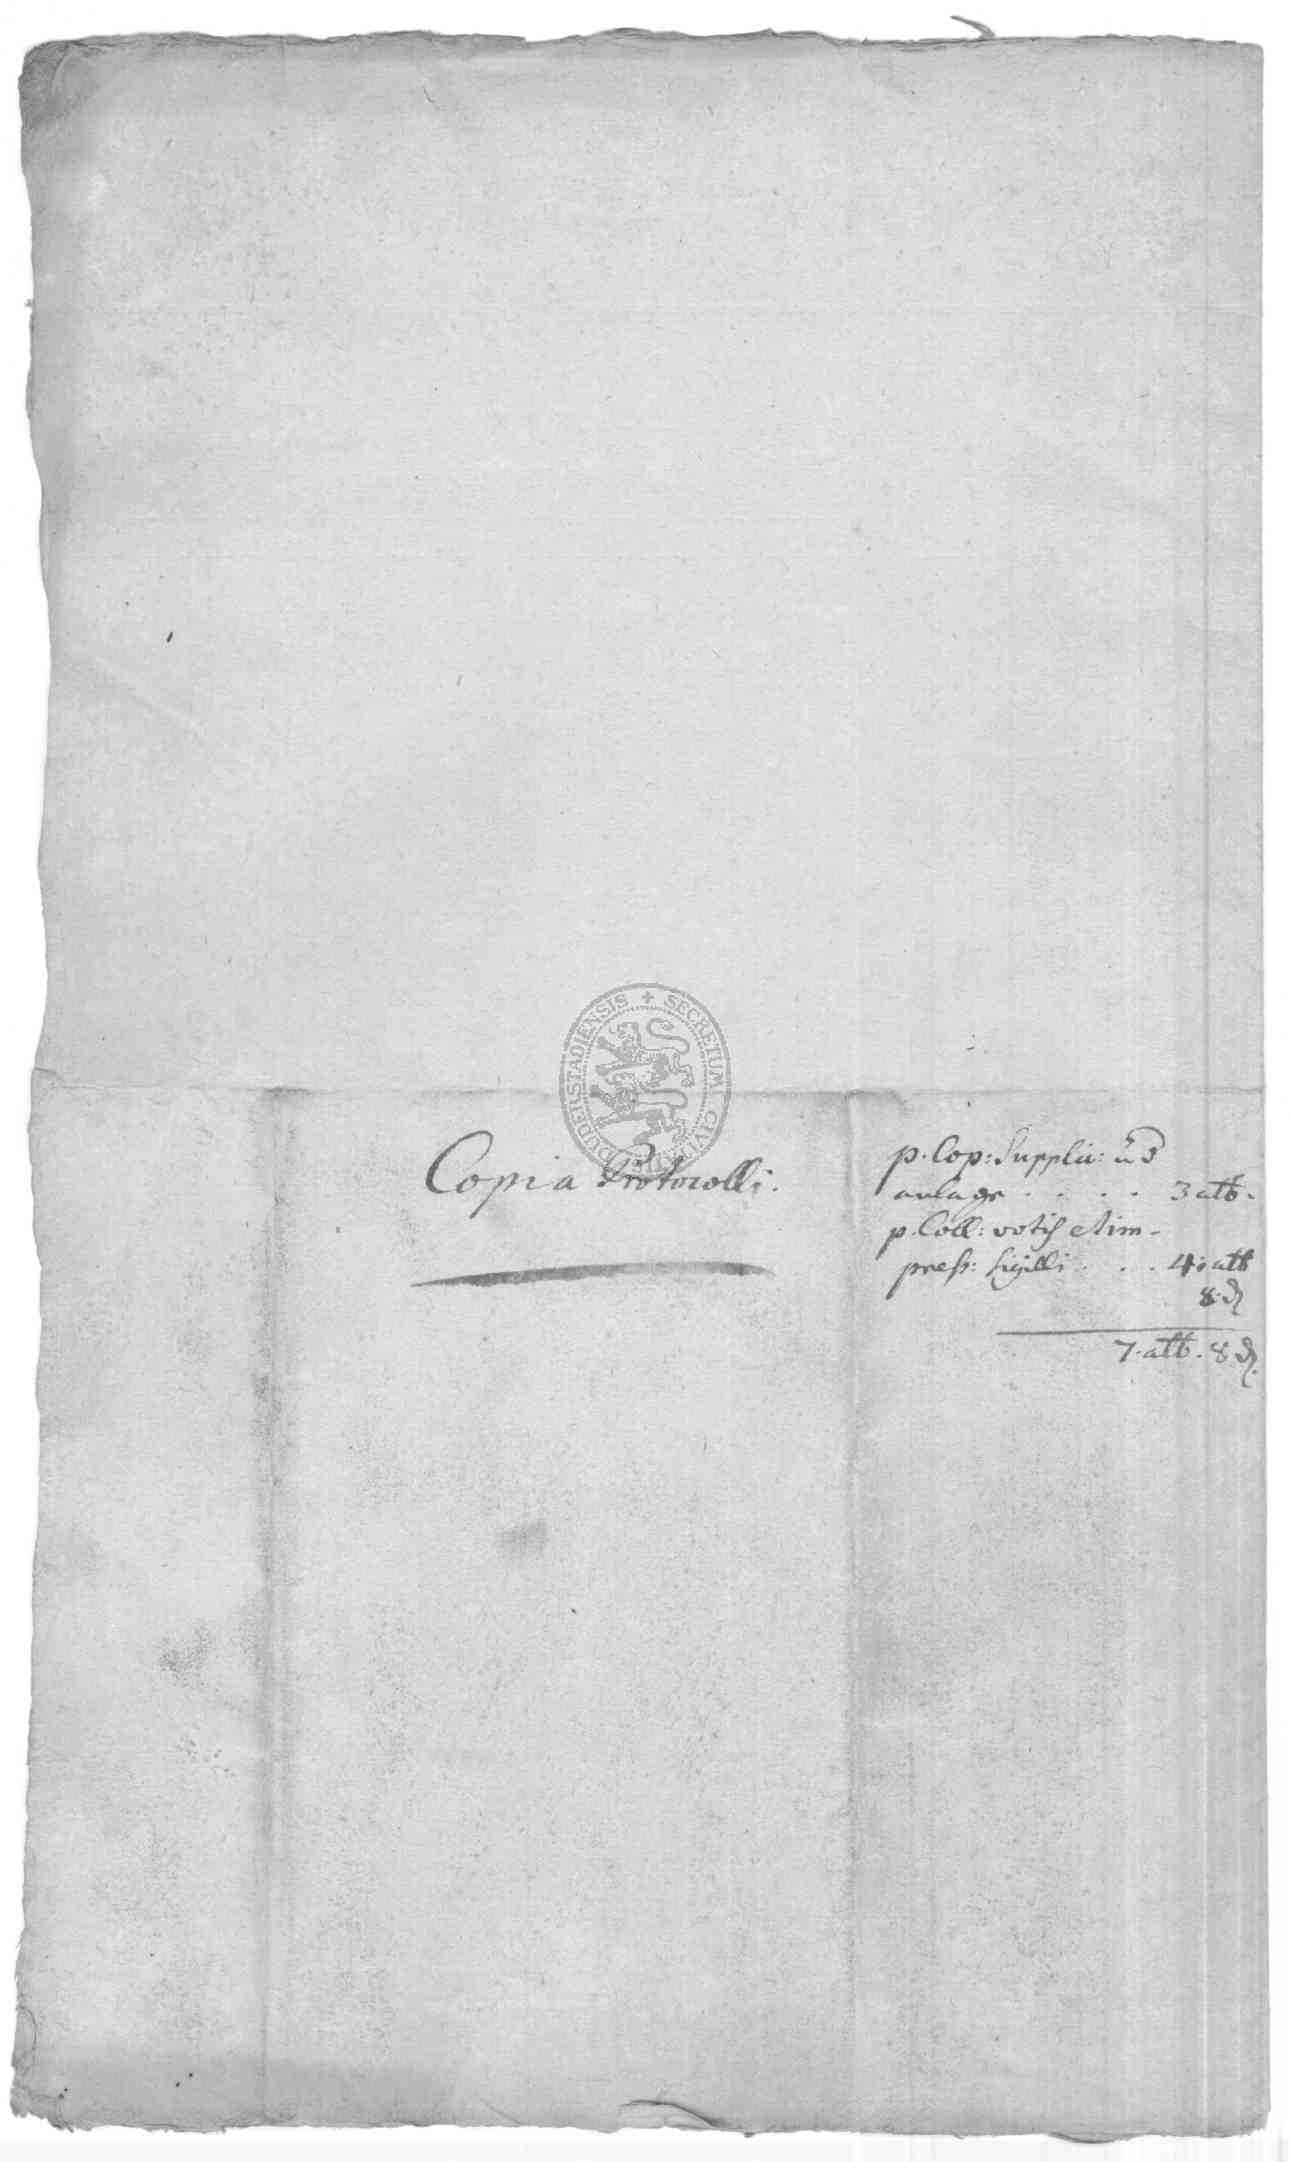 SECRETUM CIVITATIS DUDERSTADIENSIS
Copia Protocolli.
p. Cop: Supplic: ud
anlage . . . . 3 alb.
p. Coll: votis et im-
press: sigilli . . . 4: alb
8 ₰
7. alb. 8 ₰.